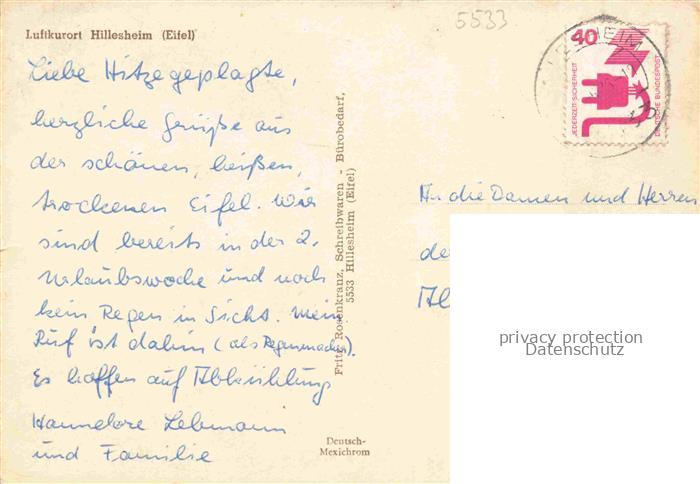 5533
Luftkurort Hillesheim (Eifel)
Liebe Hitzegeplagte,
herzliche Grüße aus
der schönen, heißen,
trockenen Eifel. Wir
sind bereits in der 2.
Urlaubswoche und noch
kein Regen in Sicht. Mein
Ruf ist dahin (als Regenmacher).
Es hoffen auf Abkühlung
Hannelore Lebmann
und Familie
Fritz Rosenkranz, Schreibwaren - Bürobedarf,
5533 Hillesheim (Eifel)
Deutsch-
Mexichrom
40
JEDERZEIT SICHERHEIT
DEUTSCHE BUNDESPOST
An die Damen und Herren
de
Ab
privacy protection
Datenschutz